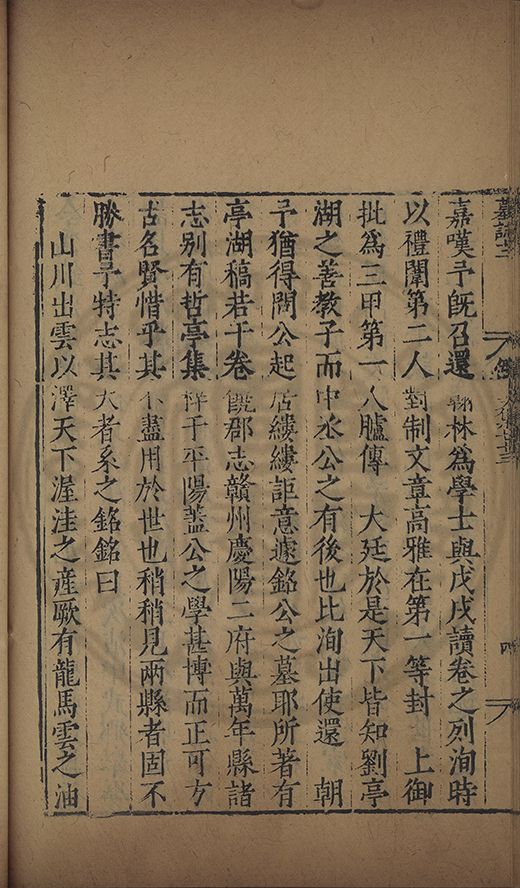 墓誌二
四
嘉嘆予旣召還翰林為學士與戊戌讀卷之列洵時
以禮闈第二人對制文章高雅在第一等封 上御
批為三甲第一人臚傳 大廷於是天下皆知劉亭
湖之善教子而中丞公之有後也比洵出使還 朝
予猶得閱公起居縷縷詎意遽銘公之墓耶所著有
亭湖稿若干卷 郡志贛州慶陽二府與萬年縣諸
志别有哲亭集梓于平陽蓋公之學甚博而正可方
古名賢惜乎其不盡用於世也稍稍見兩縣者固不
勝書予特志其大者系之銘銘曰
山川出雲以澤天下渥洼之産厥有龍馬雲之油